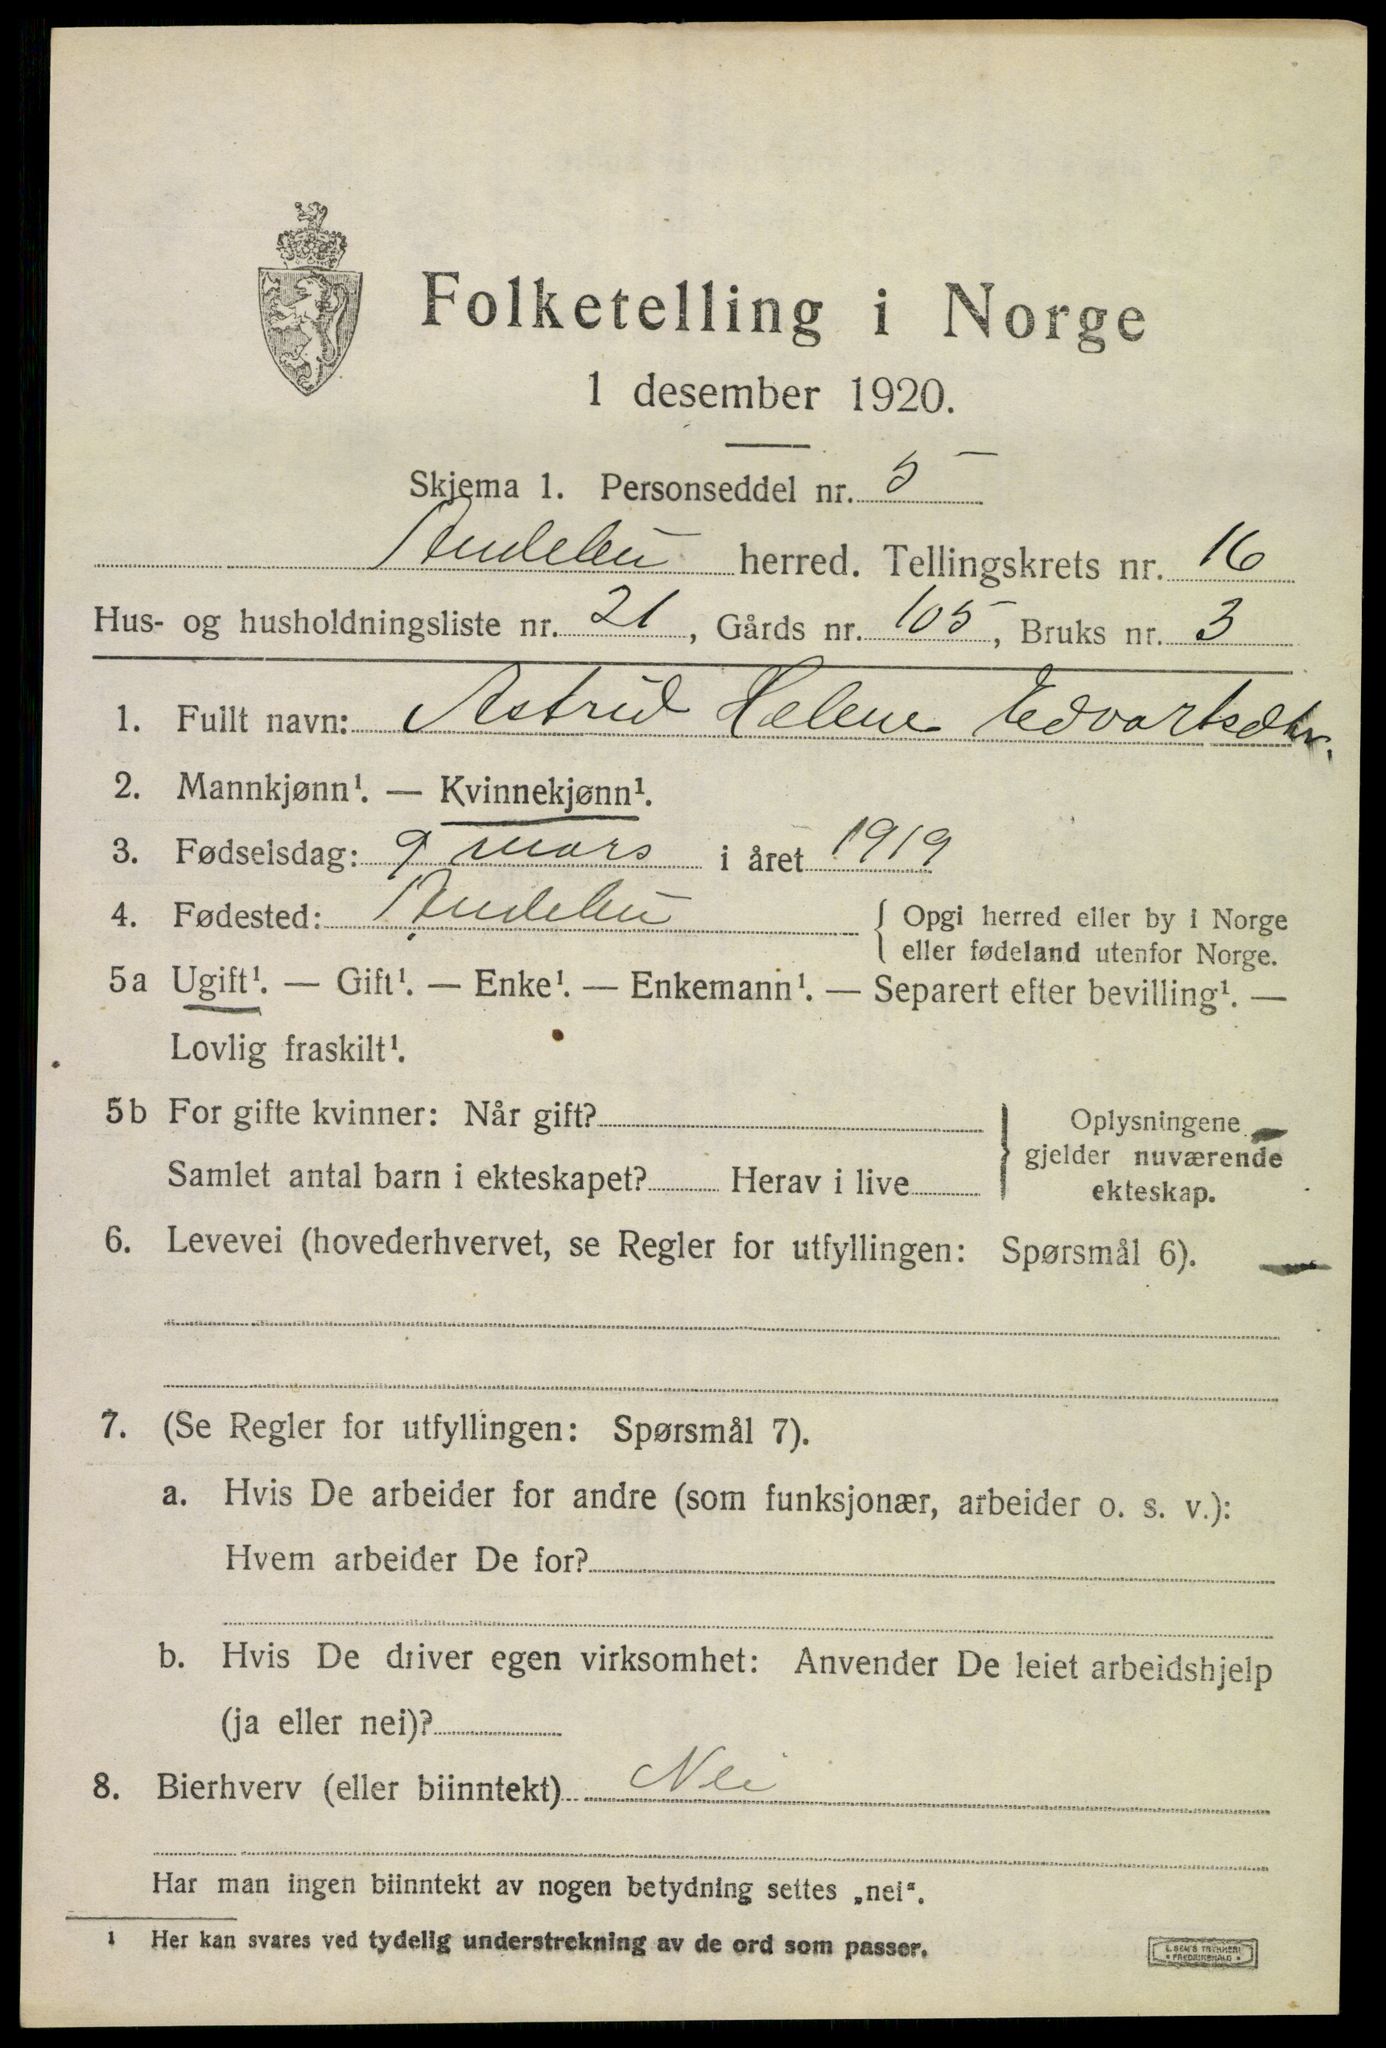 Folketelling i Norge
1 desember 1920.
Skjema 1. Personseddel nr. 5
Andebu herred. Tellingskrets nr. 16
Hus- og husholdningsliste nr. 21, Gårds nr. 105, Bruks nr. 3
1. Fullt navn: Astrid Helene Edvartsdtr.
2. Mannkjønn¹. — Kvinnekjønn¹.
3. Fødselsdag: 9 mars i året 1919
4. Fødested: Andebu { Opgi herred eller by i Norge
eller fødeland utenfor Norge.
5a Ugift¹. — Gift¹. — Enke¹. — Enkemann¹. — Separert efter bevilling¹. —
Lovlig fraskilt¹.
5b For gifte kvinner: Når gift? } Oplysningene
gjelder nuværende
Samlet antal barn i ekteskapet? Herav i live ekteskap.
6. Levevei (hovederhvervet, se Regler for utfyllingen: Spørsmål 6).
7. (Se Regler for utfyllingen: Spørsmål 7).
a. Hvis De arbeider for andre (som funksjonær, arbeider o. s. v.):
Hvem arbeider De for?
b. Hvis De driver egen virksomhet: Anvender De leiet arbeidshjelp
(ja eller nei)?
8. Bierhverv (eller biinntekt) Nei
Har man ingen biinntekt av nogen betydning settes „nei“.
1 Her kan svares ved tydelig understrekning av de ord som passer.
E. SEM'S TRYKKERI
FREDRIKSHALD